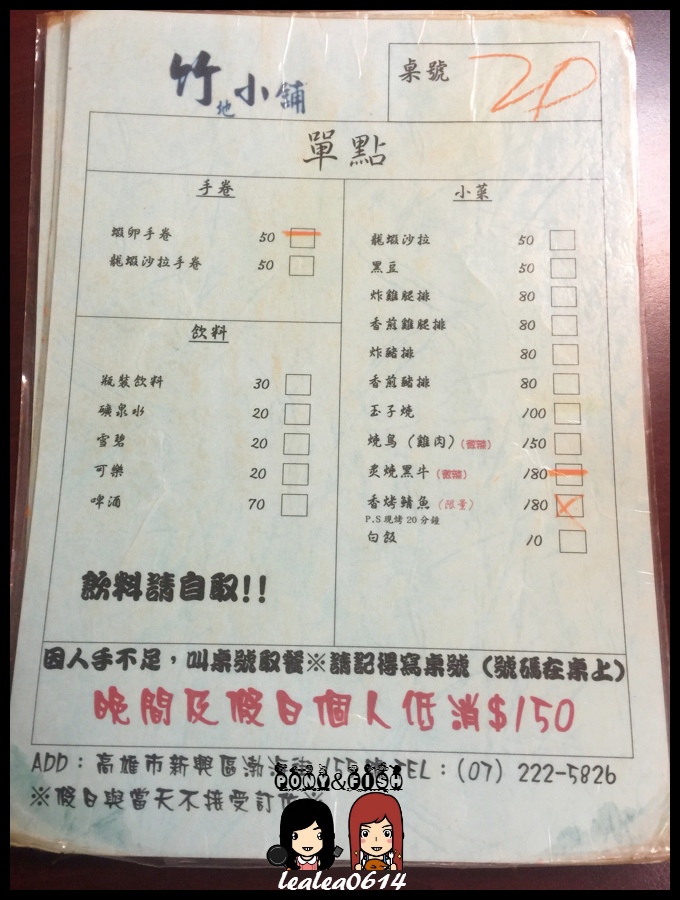 竹地小舖
桌號 20
單點
手卷
蝦卵手卷 50
龍蝦沙拉手卷 50
飲料
瓶裝飲料 30
礦泉水 20
雪碧 20
可樂 20
啤酒 70
飲料請自取!!
小菜
龍蝦沙拉 50
黑豆 50
炸雞腿排 80
香煎雞腿排 80
炸豬排 80
香煎豬排 80
玉子燒 100
燒鳥(雞肉)(微辣) 150
炙燒黑牛(微辣) 180
香烤鯖魚(限量) 180
P.S現烤20分鐘
白飯 10
因人手不足,叫桌號取餐※請記得寫桌號(號碼在桌上)
晚間及假日個人低消$150
ADD:高雄市新興區渤海街155號 TEL:(07) 222-5826
※假日與當天不接受訂位※
PONY&FISH
lealea0614